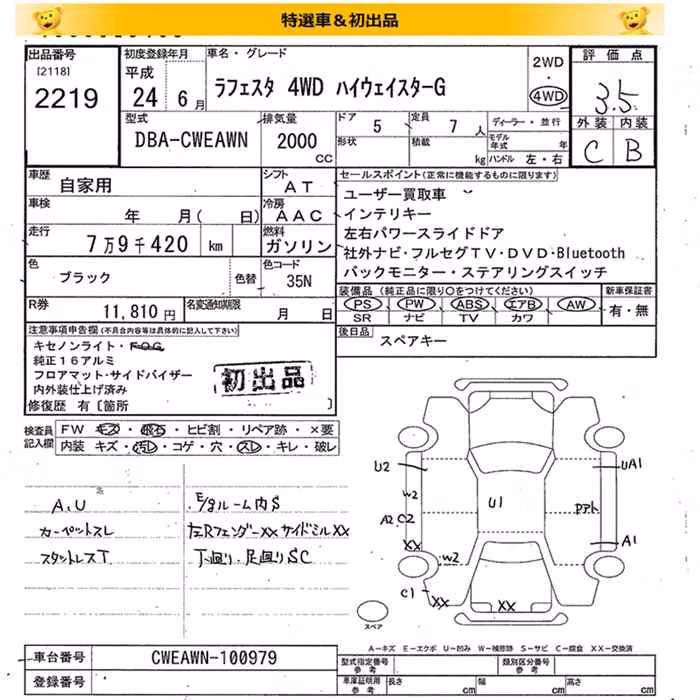 特選車＆初出品
出品番号
[2118]
2219
初度登録年月
平成
24 6月
車名・グレード
ラフェスタ 4WD ハイウェイスターG
2WD
・
4WD
評価点
3.5
外装 内装
C B
型式
DBA-CWEAWN
排気量
2000
CC
ドア
5
定員
7 人
形状
積載
kg
ディーラー・並行
モデル年式 年
ハンドル 左・右
車歴
自家用
シフト
AT
車検
年 月( 日)
冷房
AAC
走行
7万9千420 km
燃料
ガソリン
色
ブラック
色替
色コード
35N
R券
11,810円
名変通知期限
月 日
セールスポイント(正常に機能するものに限ります)
ユーザー買取車
インテリキー
左右パワースライドドア
社外ナビ・フルセグTV・DVD・Bluetooth
バックモニター・ステアリングスイッチ
装備品(純正品に限り○をつけてください)
PS PW ABS エアB AW
SR ナビ TV カワ
新車保証書
有・無
後日品
スペアキー
注意事項申告欄(不具合内容等は具体的に記入して下さい)
キセノンライト・FOG
純正16アルミ
フロアマット・サイドバイザー
内外装仕上げ済み
修復歴 有〔箇所 〕
初出品
検査員記入欄
FW キズ・飛石・ヒビ割・リペア跡・×要
内装 キズ・汚レ・コゲ・穴・スレ・キレ・破レ
A,U
カーペットスレ
スタットレスT
E/gルーム内S
左RフェンダーXXサイドミルXX
下廻り、足廻りSC
U2
W2
A2 C2
XX
W2
C1
XX
XX
U1
UA1
A1
スペア
A－キズ E－エクボ U－凹み W－補修跡 S－サビ C－腐食 XX－交換済
車台番号
CWEAWN-100979
登録番号
型式指定番号
参考
類別区分番号
参考
車庫証明用
参考
長さ cm
幅 cm
高さ cm